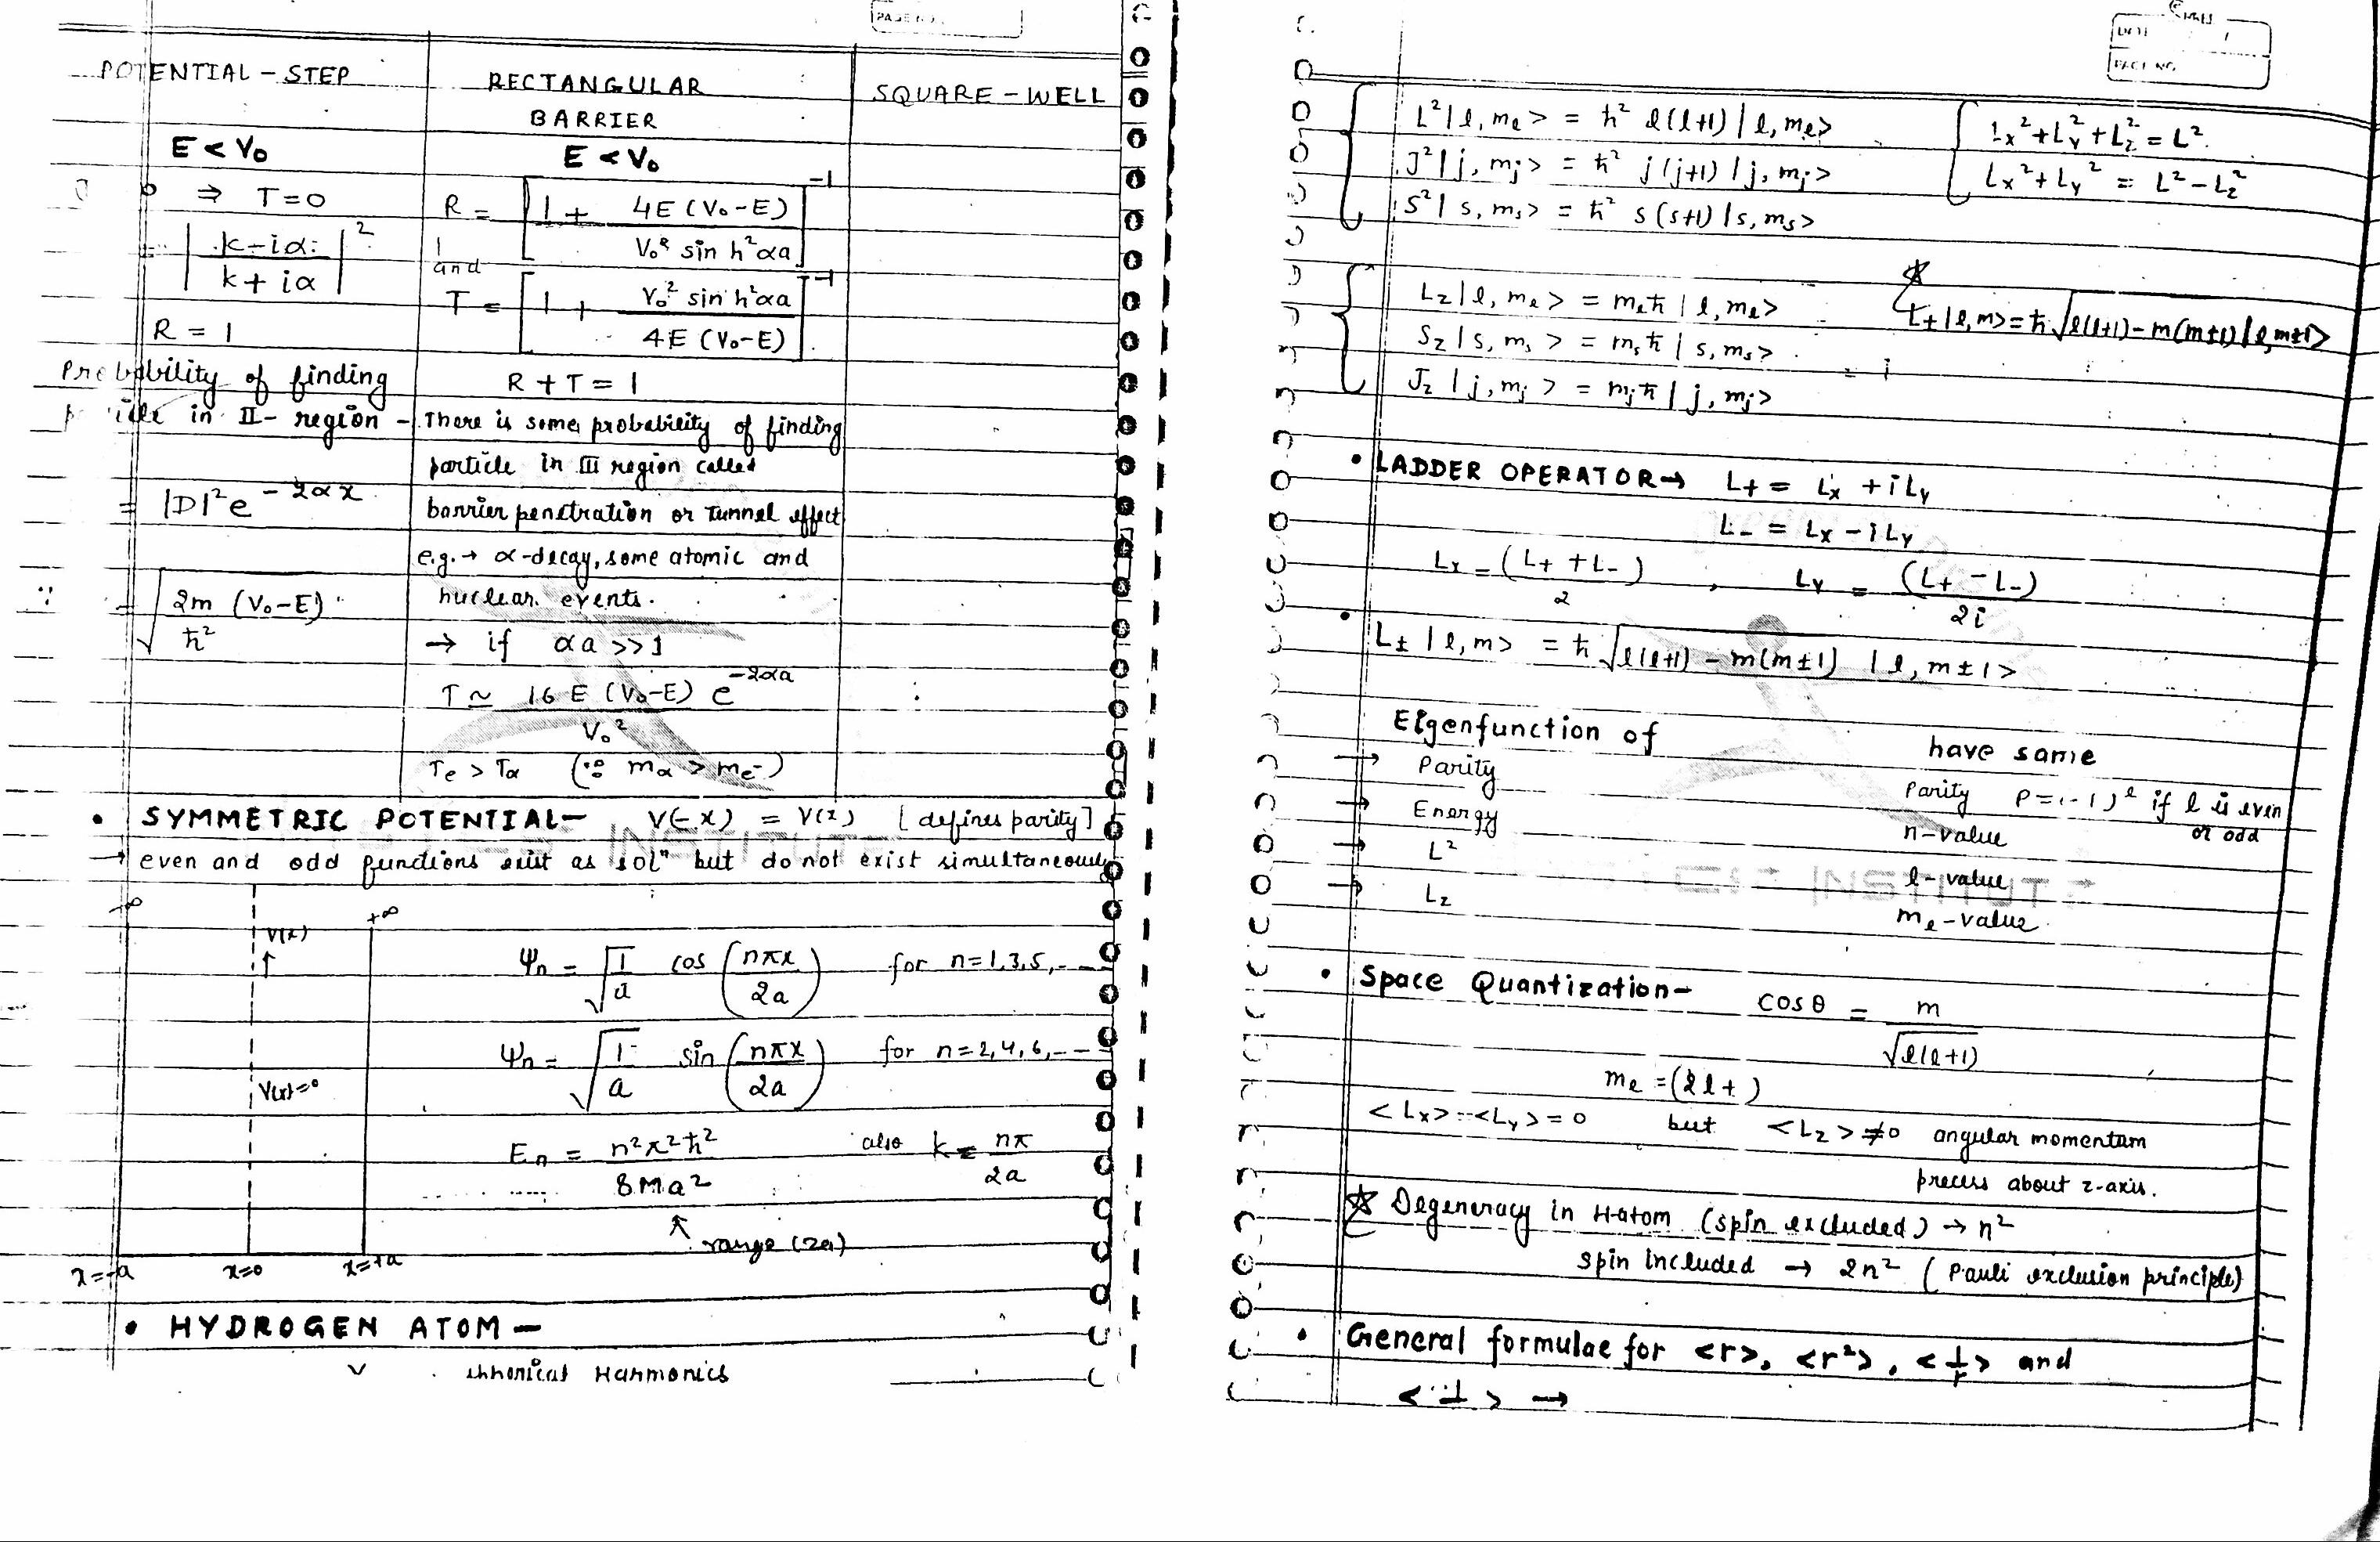 PAGE NO.
POTENTIAL - STEP
RECTANGULAR
BARRIER
SQUARE - WELL
E < V₀
⇒ T = 0
= | (k - iα) / (k + iα) |²
R = 1
Probability of finding
particle in II - region -
= |D|² e^(-2αx)
∵ = √(2m/ħ² (V₀-E))
E < V₀
R = [1 + 4E(V₀-E) / V₀² sin h²αa]⁻¹
and
T = [1 + V₀² sin h²αa / 4E(V₀-E)]⁻¹
R + T = 1
There is some probability of finding
particle in III region called
barrier penetration or Tunnel effect
e.g. → α-decay, some atomic and
nuclear events.
→ if αa >> 1
T ≃ 16 E (V₀-E) e^(-2αa) / V₀²
Te > Tα (∵ mα > me⁻)
• SYMMETRIC POTENTIAL - V(-x) = V(x) [defines parity]
→ even and odd functions exist as solⁿ but do not exist simultaneously
-∞
+∞
V(x)
↑
V(x)=0
x=-a
x=0
x=+a
Ψn = √(1/a) cos (nπx/2a) for n=1,3,5,---
Ψn = √(1/a) sin (nπx/2a) for n=2,4,6,---
En = n²π²ħ² / 8Ma² also k = nπ/2a
↑ range (2a)
• HYDROGEN ATOM -
Spherical Harmonics
DATE
PAGE NO.
L² | l, ml > = ħ² l(l+1) | l, ml >
J² | j, mj > = ħ² j(j+1) | j, mj >
S² | s, ms > = ħ² s(s+1) | s, ms >
Lx² + Ly² + Lz² = L²
Lx² + Ly² = L² - Lz²
Lz | l, ml > = ml ħ | l, ml >
Sz | s, ms > = ms ħ | s, ms >
Jz | j, mj > = mj ħ | j, mj >
L± | l, m > = ħ √(l(l+1) - m(m±1)) | l, m±1 >
• LADDER OPERATOR → L+ = Lx + i Ly
L- = Lx - i Ly
Lx = (L+ + L-) / 2 , Ly = (L+ - L-) / 2i
• L± | l, m > = ħ √(l(l+1) - m(m±1)) | l, m±1 >
Eigenfunction of have same
→ Parity Parity P = (-1)^l if l is even or odd
→ Energy n-value
→ L² l-value
→ Lz ml-value
INSTITUTE
• Space Quantization - cos θ = m / √(l(l+1))
ml = (2l + )
< Lx > = < Ly > = 0 but < Lz > ≠ 0 angular momentum
precess about z-axis.
☆ Degeneracy in H-atom (spin excluded) → n²
spin included → 2n² (Pauli exclusion principle)
• General formulae for <r>, <r²>, <1/r> and